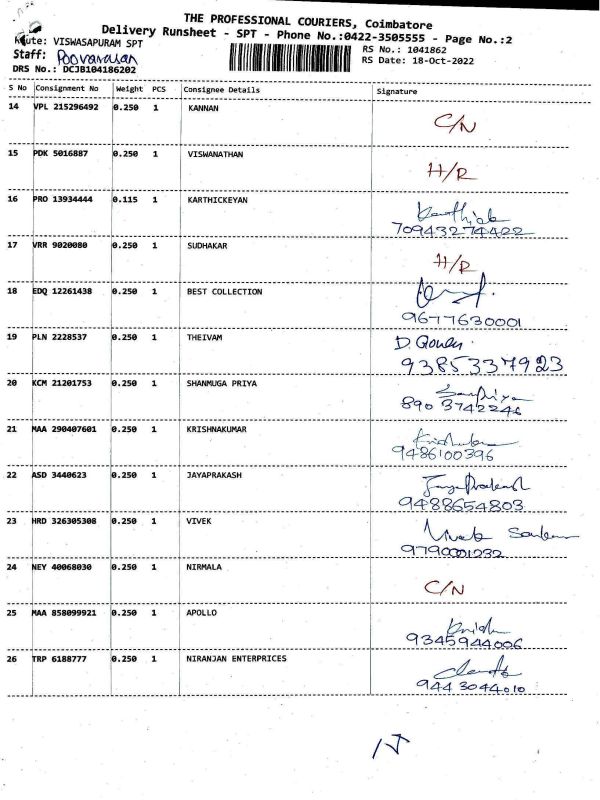 THE PROFESSIONAL COURIERS, Coimbatore
Delivery Runsheet - SPT - Phone No.:0422-3505555 - Page No.:2
Route: VISWASAPURAM SPT
RS No.: 1041862
Staff: Poovarasan
RS Date: 18-Oct-2022
DRS No.: DCJB104186202
S No Consignment No Weight PCS Consignee Details Signature
14 VPL 215296492 0.250 1 KANNAN C/N
15 PDK 5016887 0.250 1 VISWANATHAN H/R
16 PRO 13934444 0.115 1 KARTHICKEYAN Karthick
70943274422
17 VRR 9020080 0.250 1 SUDHAKAR H/R
18 EDQ 12261438 0.250 1 BEST COLLECTION
9677630001
19 PLN 2228537 0.250 1 THEIVAM D.
9385337923
20 KCM 21201753 0.250 1 SHANMUGA PRIYA
8903742246
21 MAA 290407601 0.250 1 KRISHNAKUMAR
9486100396
22 ASD 3440623 0.250 1 JAYAPRAKASH JayaPrakash
9488654803
23 HRD 326305308 0.250 1 VIVEK Vivek
9790001232
24 NEY 40068030 0.250 1 NIRMALA C/N
25 MAA 858099921 0.250 1 APOLLO
9345944006
26 TRP 6188777 0.250 1 NIRANJAN ENTERPRICES
9443044010